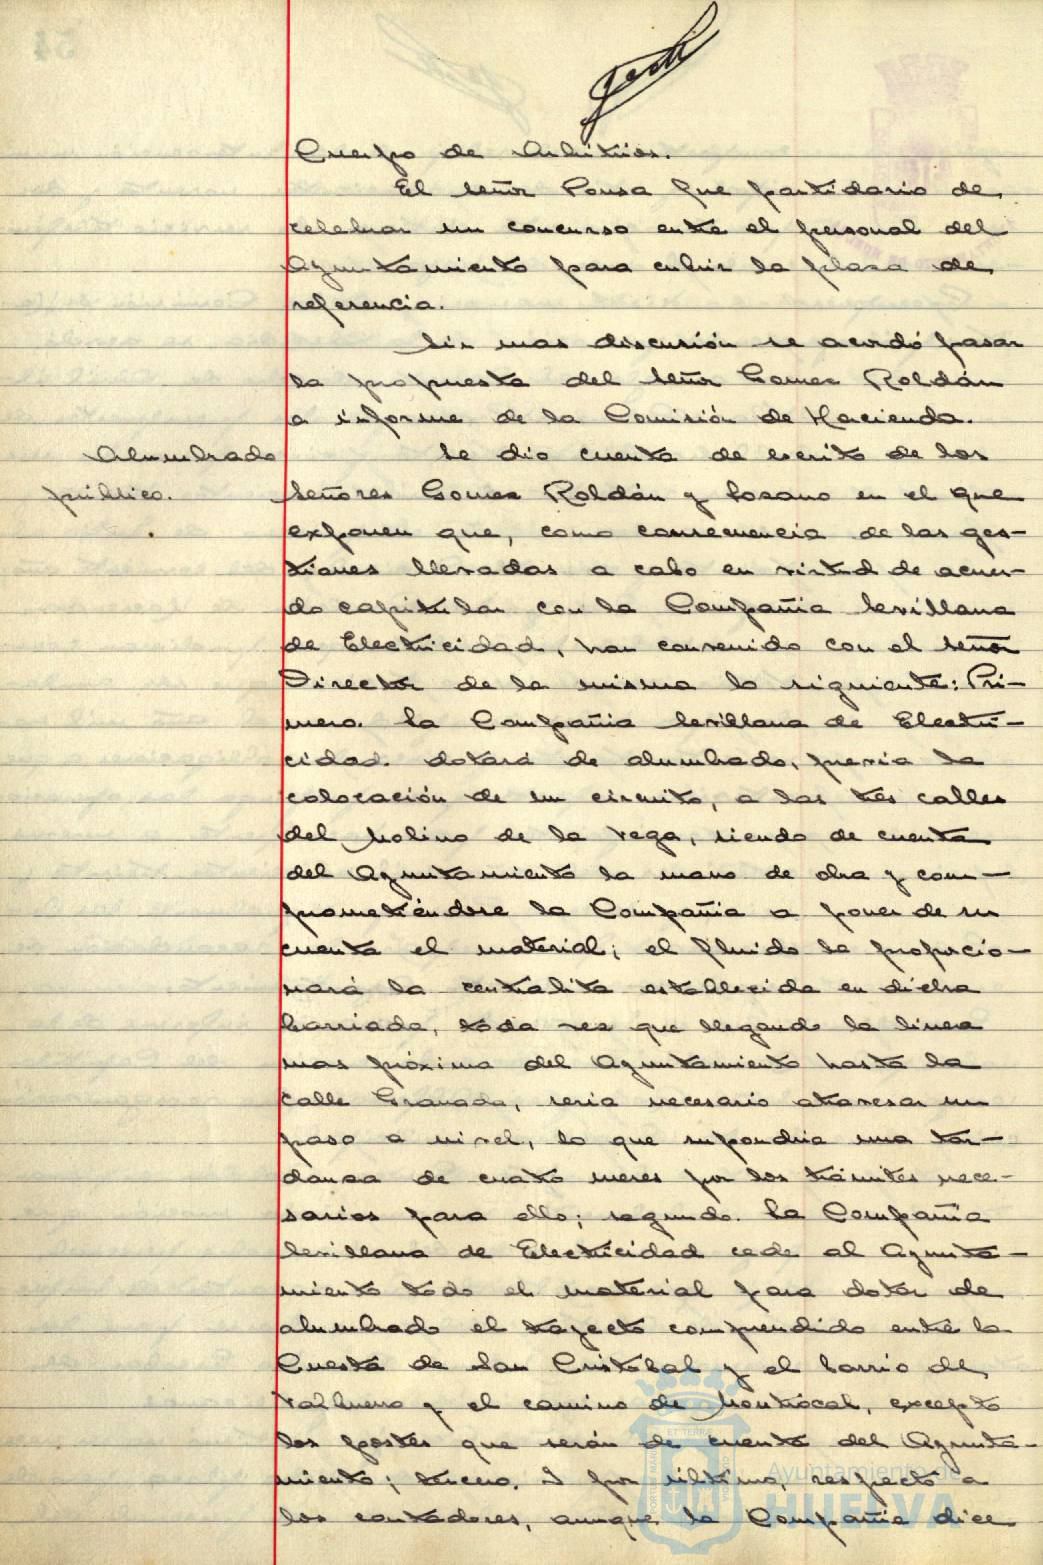 Cuerpo de Arbitrios.
El señor Ponsa fue partidario de
celebrar un concurso entre el personal del
Ayuntamiento para cubrir la plaza de
referencia.
Sin mas discusión se acordó pasar
la propuesta del señor Gomez Roldán
a informe de la Comisión de Hacienda.
Alumbrado
público.
Se dio cuenta de escrito de los
señores Gomez Roldán y Lozano en el que
exponen que, como consecuencia de las ges-
tiones llevadas a cabo en virtud de acuer-
do capitular con la Compañia Sevillana
de Electricidad, han convenido con el señor
Director de la misma lo siguiente: Pri-
mero. La Compañia Sevillana de Electri-
cidad dotará de alumbrado, previa la
colocación de un circuito, a las tres calles
del Molino de la Vega, siendo de cuenta
del Ayuntamiento la mano de obra y com-
prometiéndose la Compañia a poner de su
cuenta el material; el fluido lo proporcio-
nará la centralita establecida en dicha
barriada, toda vez que llegando la linea
mas próxima del Ayuntamiento hasta la
calle Granada, seria necesario atravesar un
paso a nivel, lo que supondria una tar-
danza de cuatro meses por los trámites nece-
sarios para ello; segundo. La Compañia
Sevillana de Electricidad cede al Ayunta-
miento todo el material para dotar de
alumbrado el trayecto comprendido entre la
Cuesta de San Cristobal y el barrio de
Balbueno y el camino de Montrocal, excepto
los postes que serán de cuenta del Ayunta-
miento; tercero. Y por último, respecto a
los contadores, aunque la Compañia dice
Ayuntamiento de
HUELVA